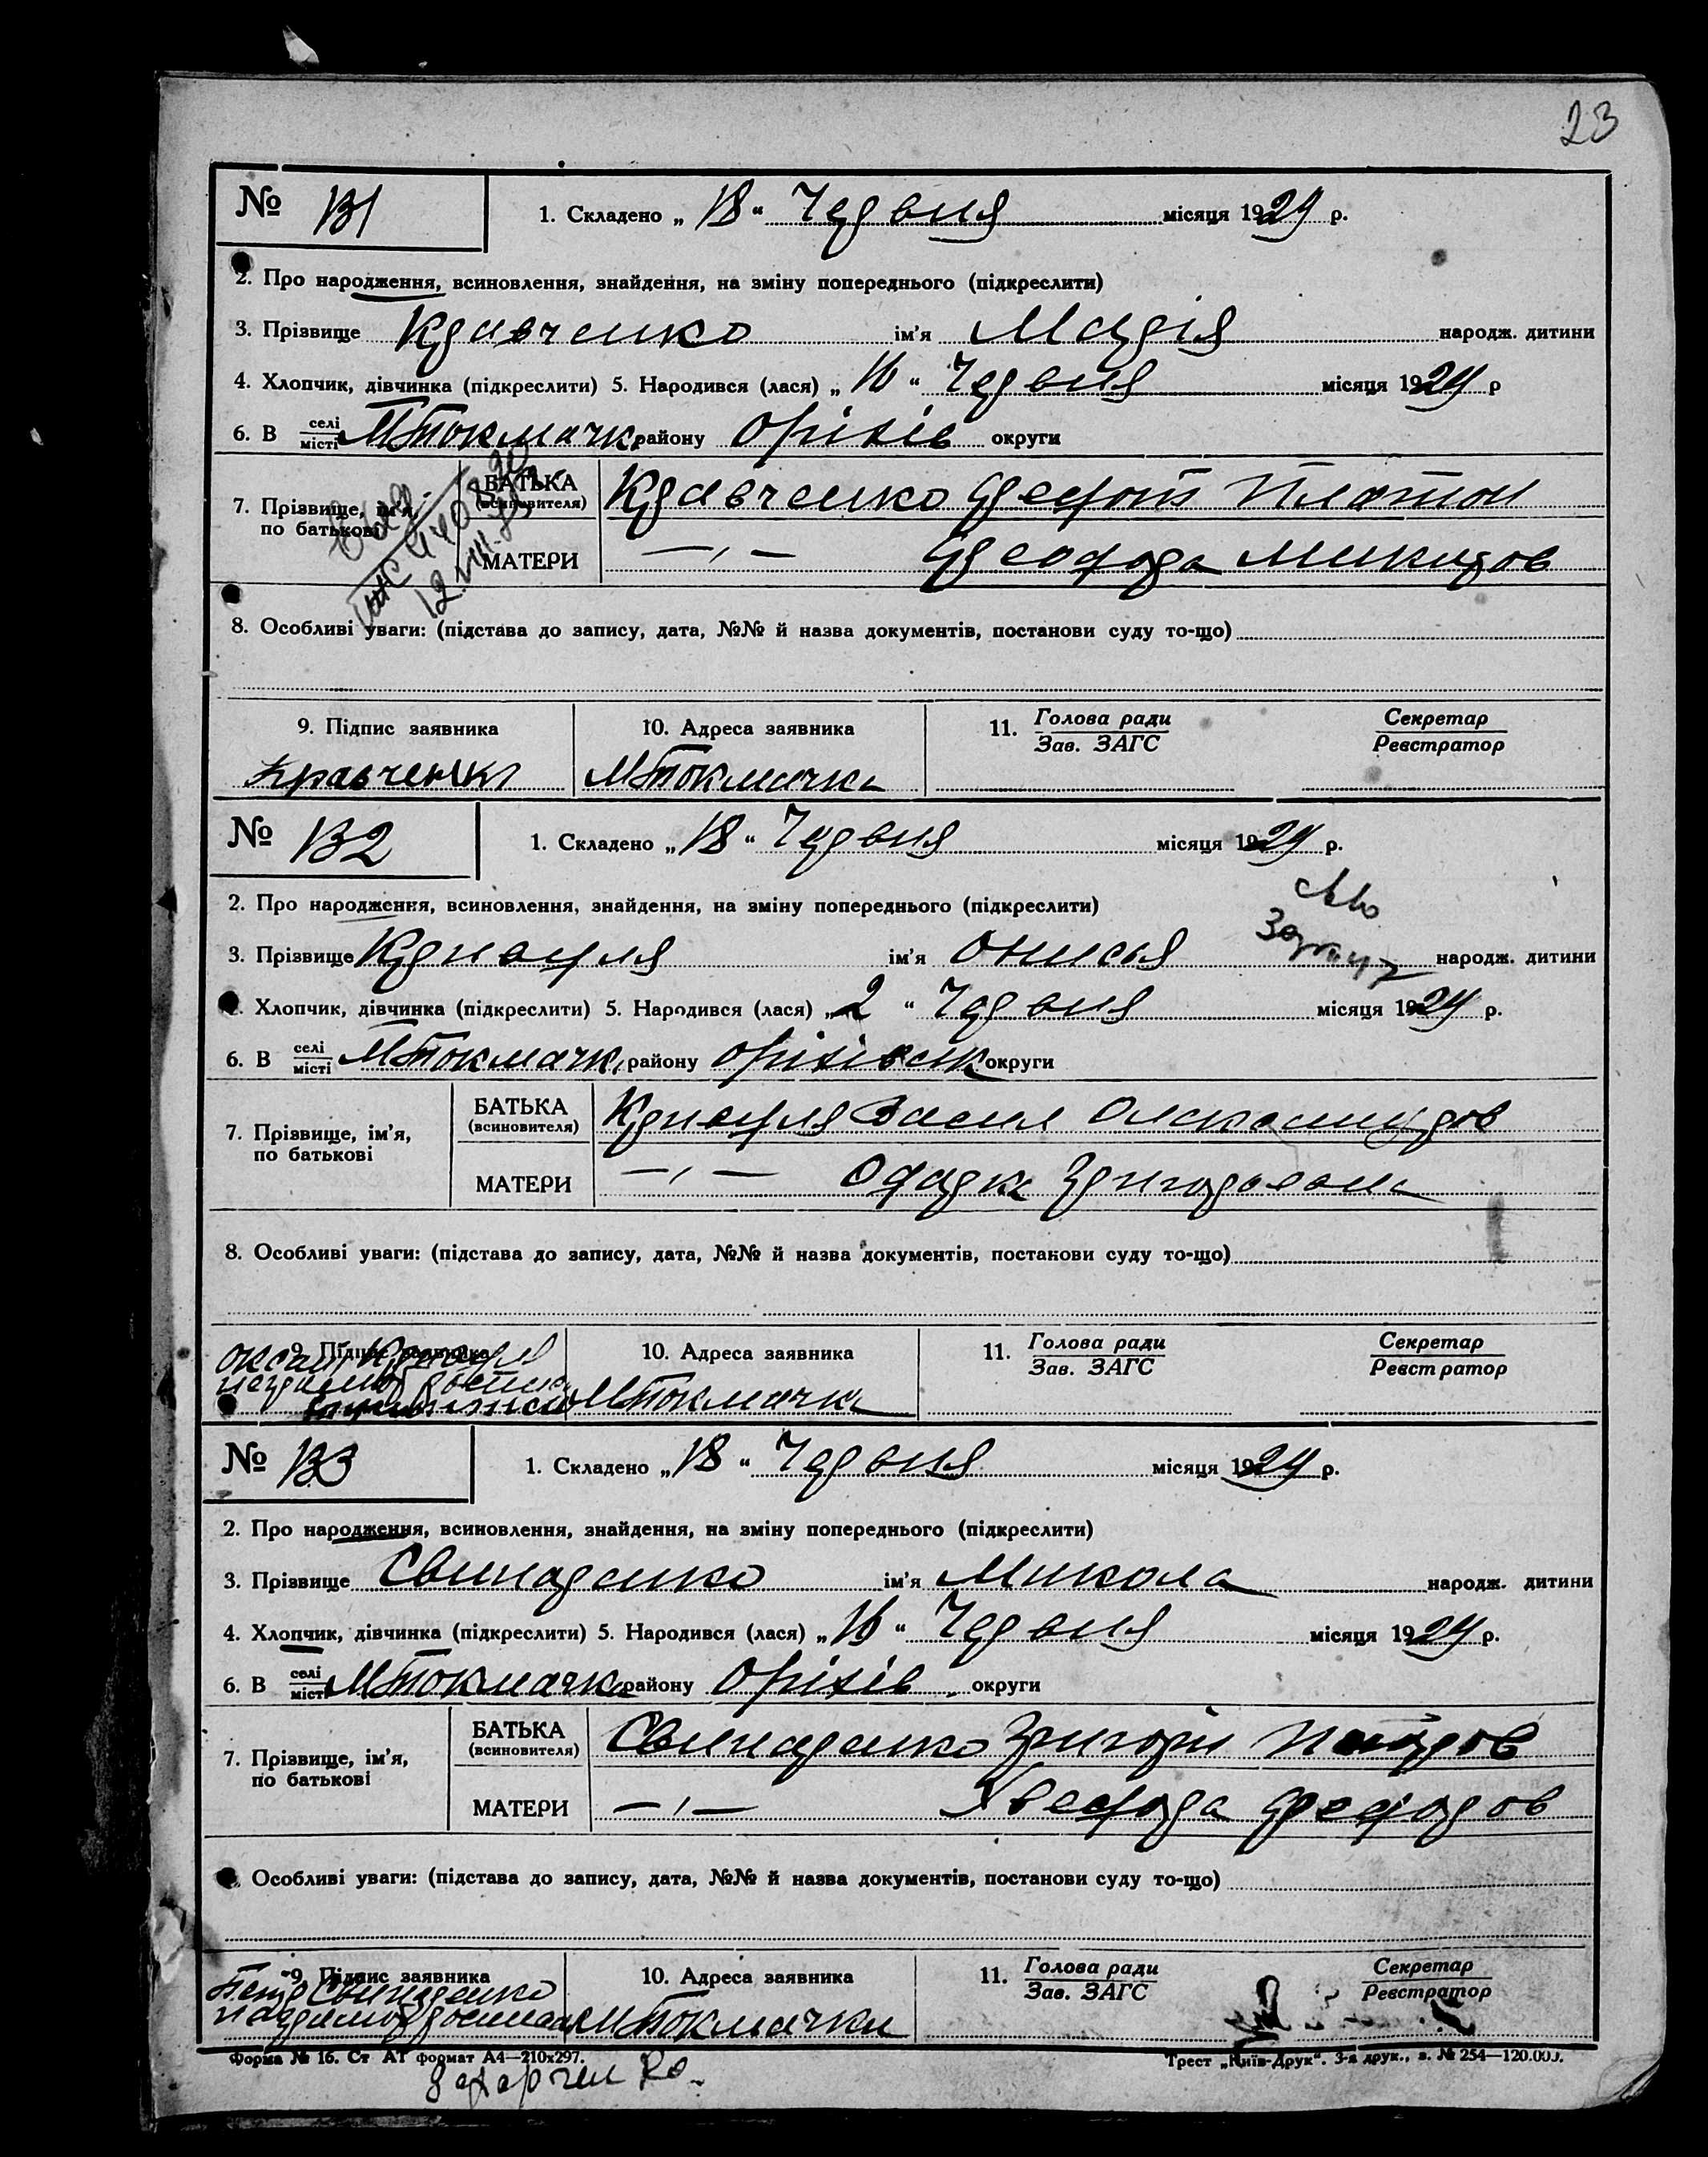 23
№ 131 1. Складено „ 18 “ Червня місяця 1929 р.
2. Про народження, всиновлення, знайдення, на зміну попереднього (підкреслити)
3. Прізвище Кравченко ім'я Марія народж. дитини
4. Хлопчик, дівчинка (підкреслити) 5. Народився (лася) „ 16 “ Червня місяця 1929 р
6. В селі/місті МТокмачка району Оріхів округи
7. Прізвище, ім'я, по батькові
БАТЬКА (всиновителя) Кравченко Федот Платон
МАТЕРИ —,,— Федора Микитов
8. Особливі уваги: (підстава до запису, дата, №№ й назва документів, постанови суду то-що)
9. Підпис заявника 10. Адреса заявника 11. Голова ради/Зав. ЗАГС Секретар/Реєстратор
Кравченко МТокмачка
№ 132 1. Складено „ 18 “ Червня місяця 1929 р.
2. Про народження, всиновлення, знайдення, на зміну попереднього (підкреслити)
3. Прізвище ім'я Онисья народж. дитини
4. Хлопчик, дівчинка (підкреслити) 5. Народився (лася) „ 2 “ Червня місяця 1929 р.
6. В селі/місті МТокмачк району Оріхівськ округи
7. Прізвище, ім'я, по батькові
БАТЬКА (всиновителя) Васил Олександров
МАТЕРИ —,,— Одарка Григорьевна
8. Особливі уваги: (підстава до запису, дата, №№ й назва документів, постанови суду то-що)
9. Підпис заявника 10. Адреса заявника 11. Голова ради/Зав. ЗАГС Секретар/Реєстратор
МТокмачка
№ 133 1. Складено „ 18 “ Червня місяця 1929 р.
2. Про народження, всиновлення, знайдення, на зміну попереднього (підкреслити)
3. Прізвище Свинаренко ім'я Микола народж. дитини
4. Хлопчик, дівчинка (підкреслити) 5. Народився (лася) „ 16 “ Червня місяця 1929 р.
6. В селі/місті МТокмачка району Оріхів округи
7. Прізвище, ім'я, по батькові
БАТЬКА (всиновителя) Свинаренко Григорій
МАТЕРИ —,,— Федоров
8. Особливі уваги: (підстава до запису, дата, №№ й назва документів, постанови суду то-що)
9. Підпис заявника 10. Адреса заявника 11. Голова ради/Зав. ЗАГС Секретар/Реєстратор
Петр Свинаренко
МТокмачки
Форма № 16. Ст АТ формат А4—210х297. Трест „Київ-Друк“. 3-я друк., з. № 254—120.000.